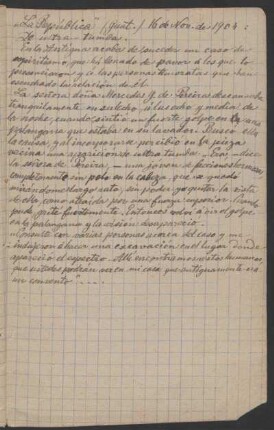 "La República" (Guat.) 16 de Nov. de 1904:
De ultra-tumba.
En la Antigua acaba de suceder un caso de
espiritismo, que ha llenado de pavor a los que lo
presenciaron y a las personas timoratas que han
escuchado la relación de él.
La señora doña Mercedes G. de Pereira descansaba
tranquilamente en su lecho a las ocho y media de
la noche, cuando sintió un fuerte golpe en la
palangana que estaba en su lavador. Buscó ella
la causa, y al incorporarse percibió en la pieza
vecina una aparición de ultra tumba. "Era - dice
la señora de Pereira, - una joven de
completamente sin pelo en la cabeza, que se quedó
mirándome largo rato, sin poder yo quitar la vista
de ella, como atraída por una fuerza superior. Cuando
pude, grité fuertemente. Entonces volví a oír el golpe
en la palangana y la visión desapareció.
Consulté con varias personas acerca del caso y me
indujeron a hacer una excavación en el lugar donde
apareció el espectro. Allí encontramos restos humanos,
que ustedes podrán ver a mi casa, que
un convento" ...